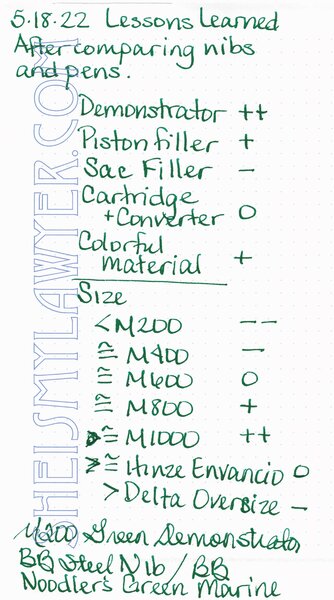 5.18.22 Lessons Learned
After comparing nibs
and pens.
Demonstrator ++
Piston filler +
Sac Filler -
Cartridge
+ Converter O
Colorful
material +
Size
< M200 --
≅ M400 -
≅ M600 O
≅ M800 +
≅ M1000 ++
≅ Hinze Envancio O
> Delta Oversize -
M200 Green Demonstrator
BB Steel Nib / BB
Noodler's Green Marine
SHEISMYLAWYER.COM